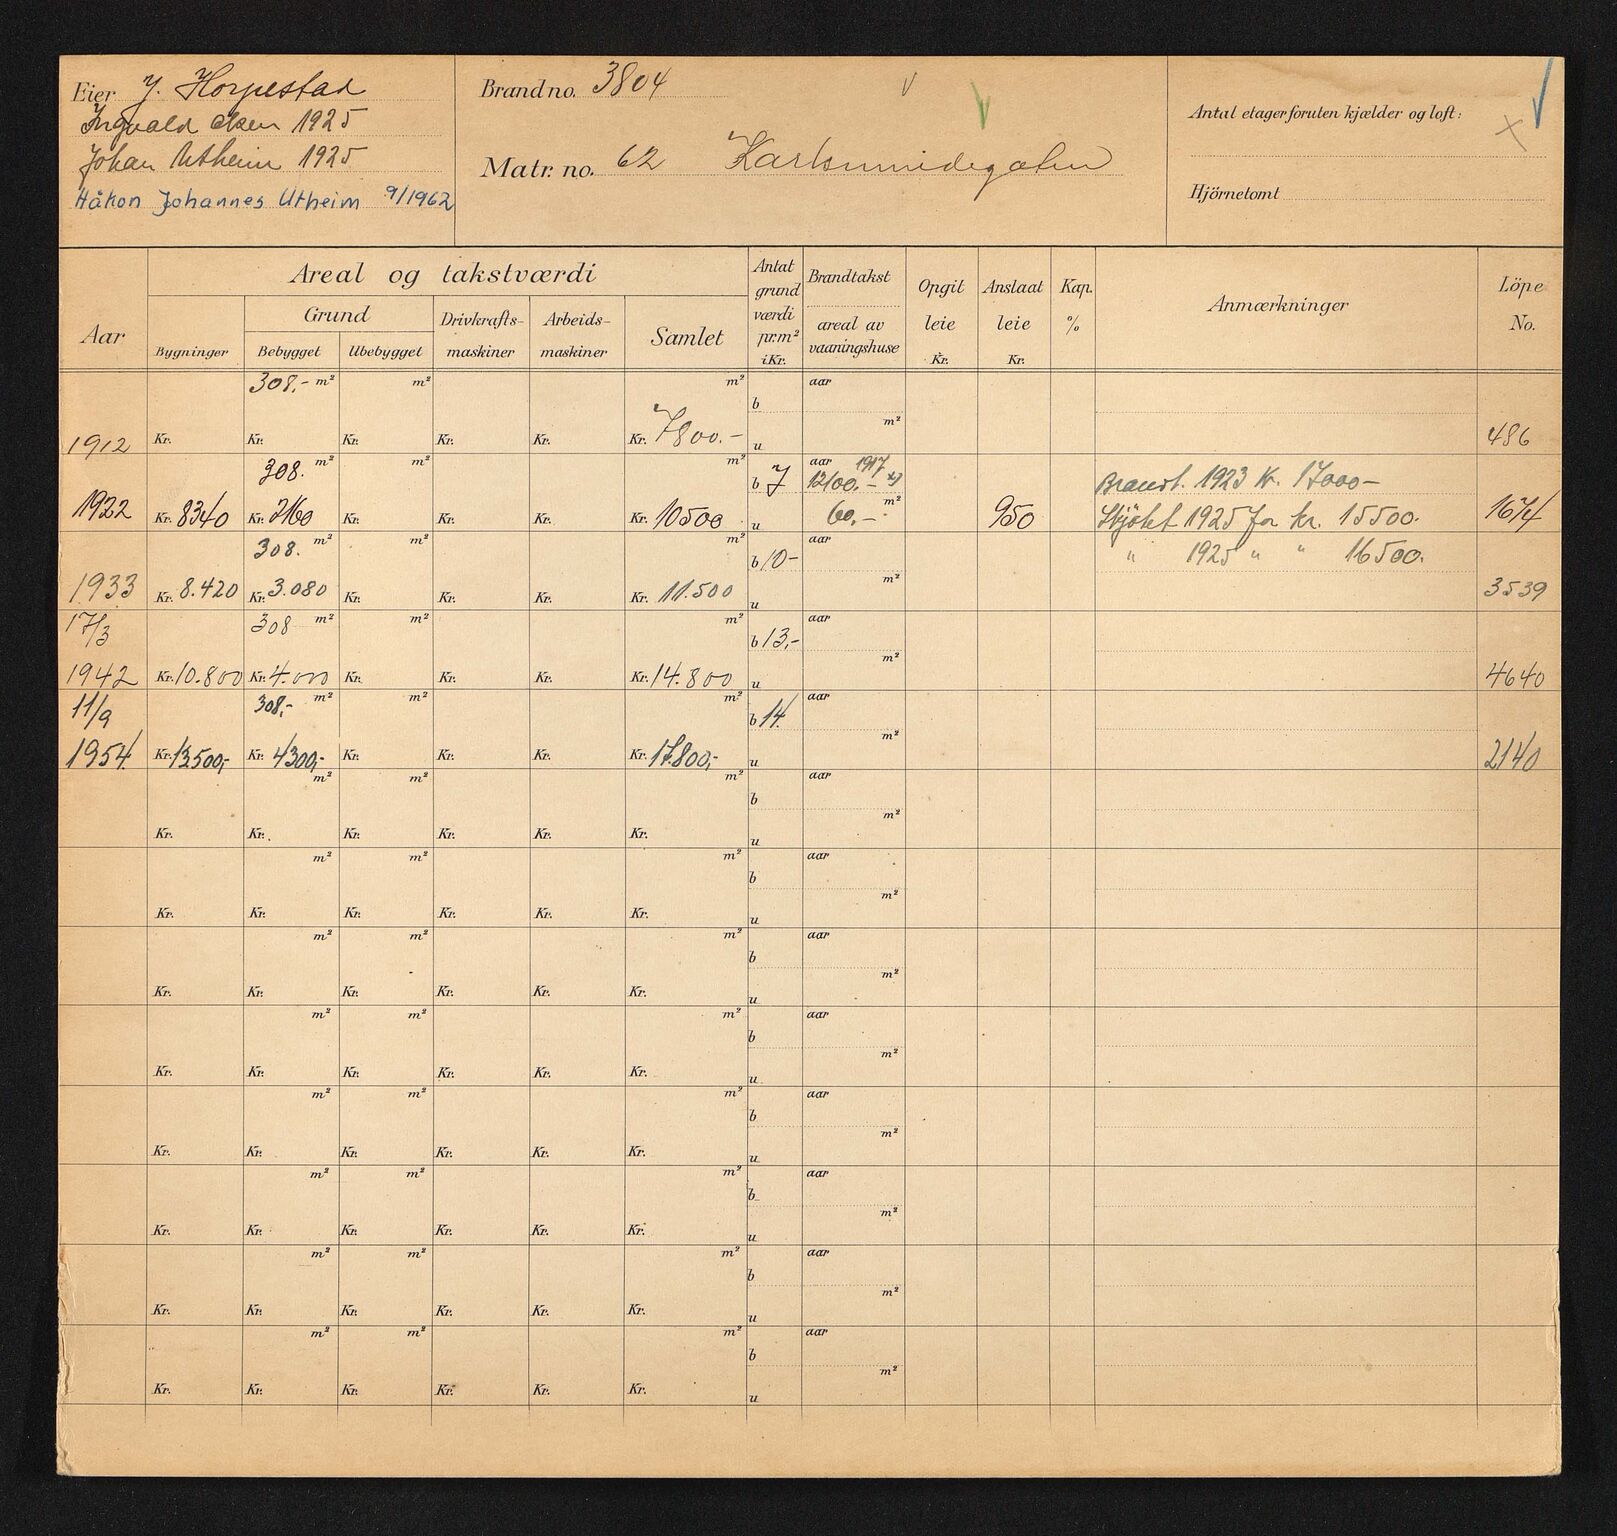 Eier J. Horpestad
Ingvald Olsen 1925
Johan Utheim 1925
Håkon Johannes Utheim 9/1962
Brand no. 3804
Matr. no. 62 Karlsminnegaten
Antal etager foruten kjælder og loft:
Hjörnetomt
Aar
Areal og takstværdi
Grund
Bygninger
Bebygget
Ubebygget
Drivkrafts-maskiner
Arbeids-maskiner
Samlet
Antat grundværdi pr. m² i Kr.
Brandtakst
areal av vaaningshuse
Opgit leie Kr.
Anslaat leie Kr.
Kap. %
Anmærkninger
Löpe No.
308.- m² m² m² b aar m²
1912 Kr. Kr. Kr. Kr. Kr. Kr. 7800.- u 486
308. m² m² m² b 7 aar 1917 12100.- m² Brandt. 1923 kr. 17000-
1922 Kr. 8340 Kr. 2160 Kr. Kr. Kr. Kr. 10500 u 60,- 950 Skjötet 1925 for kr. 15500. 1674
308. m² m² m² b 10- aar m² " 1925 " " 16500.
1933 Kr. 8.420 Kr. 3.080 Kr. Kr. Kr. Kr. 11.500 u 3539
17/3 308 m² m² m² b 13,- aar m²
1942 Kr. 10.800 Kr. 4.000 Kr. Kr. Kr. Kr. 14.800 u 4640
11/9 308,- m² m² m² b 14. aar m²
1954. Kr. 13500,- Kr. 4300,- Kr. Kr. Kr. Kr. 17.800,- u 2140
m² m² m² b aar m²
Kr. Kr. Kr. Kr. Kr. Kr. u
m² m² m² b aar m²
Kr. Kr. Kr. Kr. Kr. Kr. u
m² m² m² b aar m²
Kr. Kr. Kr. Kr. Kr. Kr. u
m² m² m² b aar m²
Kr. Kr. Kr. Kr. Kr. Kr. u
m² m² m² b aar m²
Kr. Kr. Kr. Kr. Kr. Kr. u
m² m² m² b aar m²
Kr. Kr. Kr. Kr. Kr. Kr. u
m² m² m² b aar m²
Kr. Kr. Kr. Kr. Kr. Kr. u
m² m² m² b aar m²
Kr. Kr. Kr. Kr. Kr. Kr. u